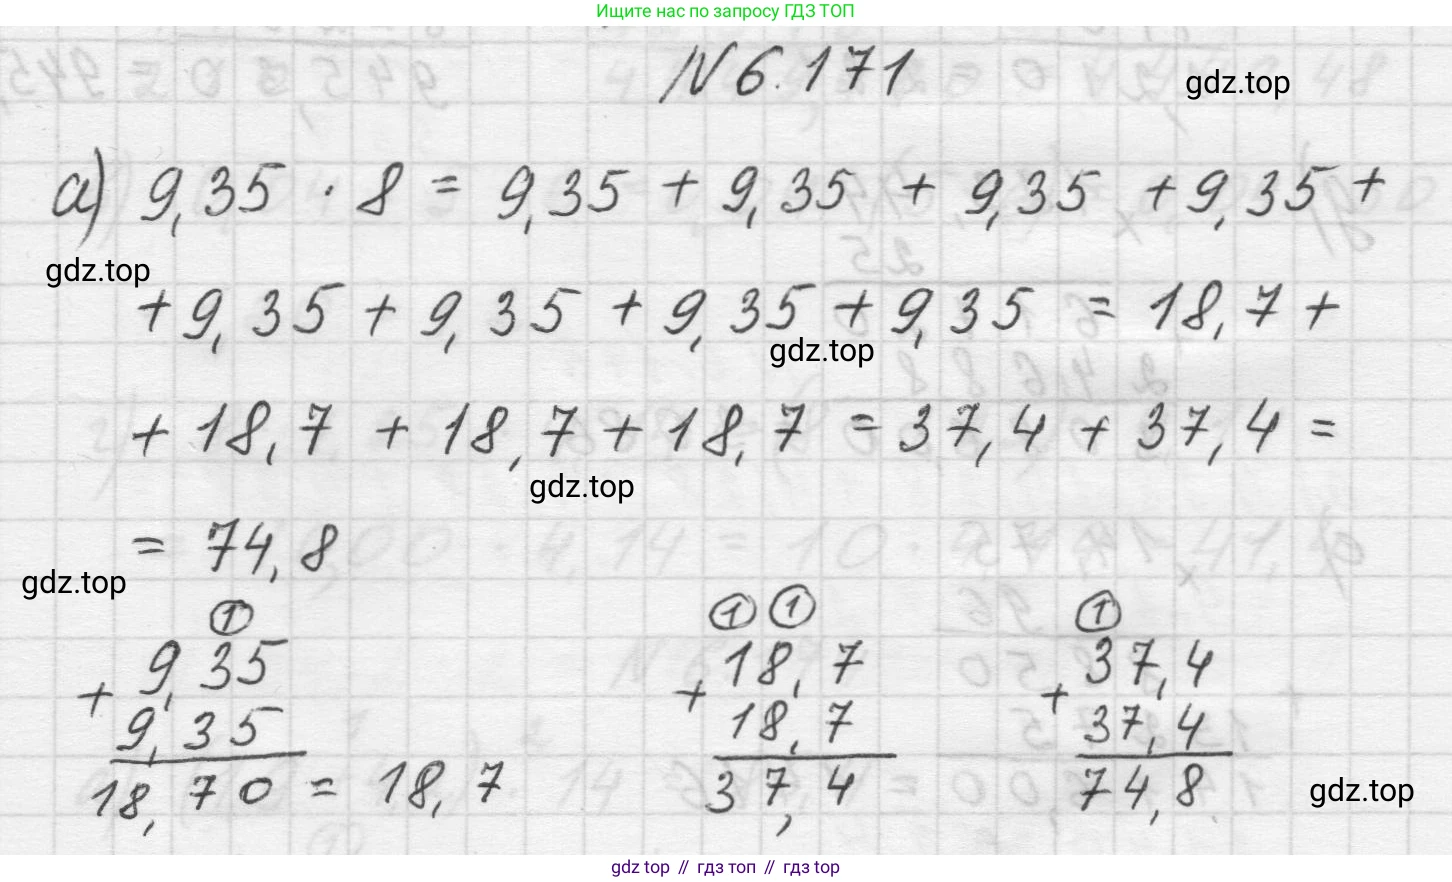 Ищите нас по запросу ГДЗ ТОП
N 6.171
gdz.top
а) 9,35 · 8 = 9,35 + 9,35 + 9,35 + 9,35 +
gdz.top
+ 9,35 + 9,35 + 9,35 + 9,35 = 18,7 +
gdz.top
+ 18,7 + 18,7 + 18,7 = 37,4 + 37,4 =
gdz.top
= 74,8
gdz.top
1
9,35
+
9,35
18,70 = 18,7
1 1
18,7
+
18,7
37,4
1
37,4
+
37,4
74,8
gdz.top
gdz top // гдз топ // гдз top